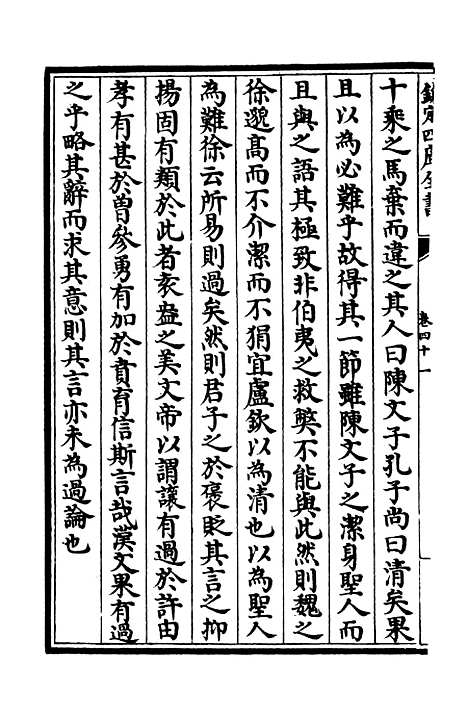 欽定四庫全書
卷四十一
十乘之馬棄而違之其人曰陳文子孔子尚曰清矣果
且以為必難乎故得其一節雖陳文子之潔身聖人而
且與之語其極致非伯夷之救弊不能與此然則魏之
徐邈高而不介潔而不狷宜盧欽以為清也以為聖人
為難徐云所易則過矣然則君子之於褒貶其言之抑
揚固有類於此者袁盎之美文帝以謂讓有過於許由
孝有甚於曽參勇有加於賁育信斯言哉漢文果有過
之乎略其辭而求其意則其言亦未為過論也